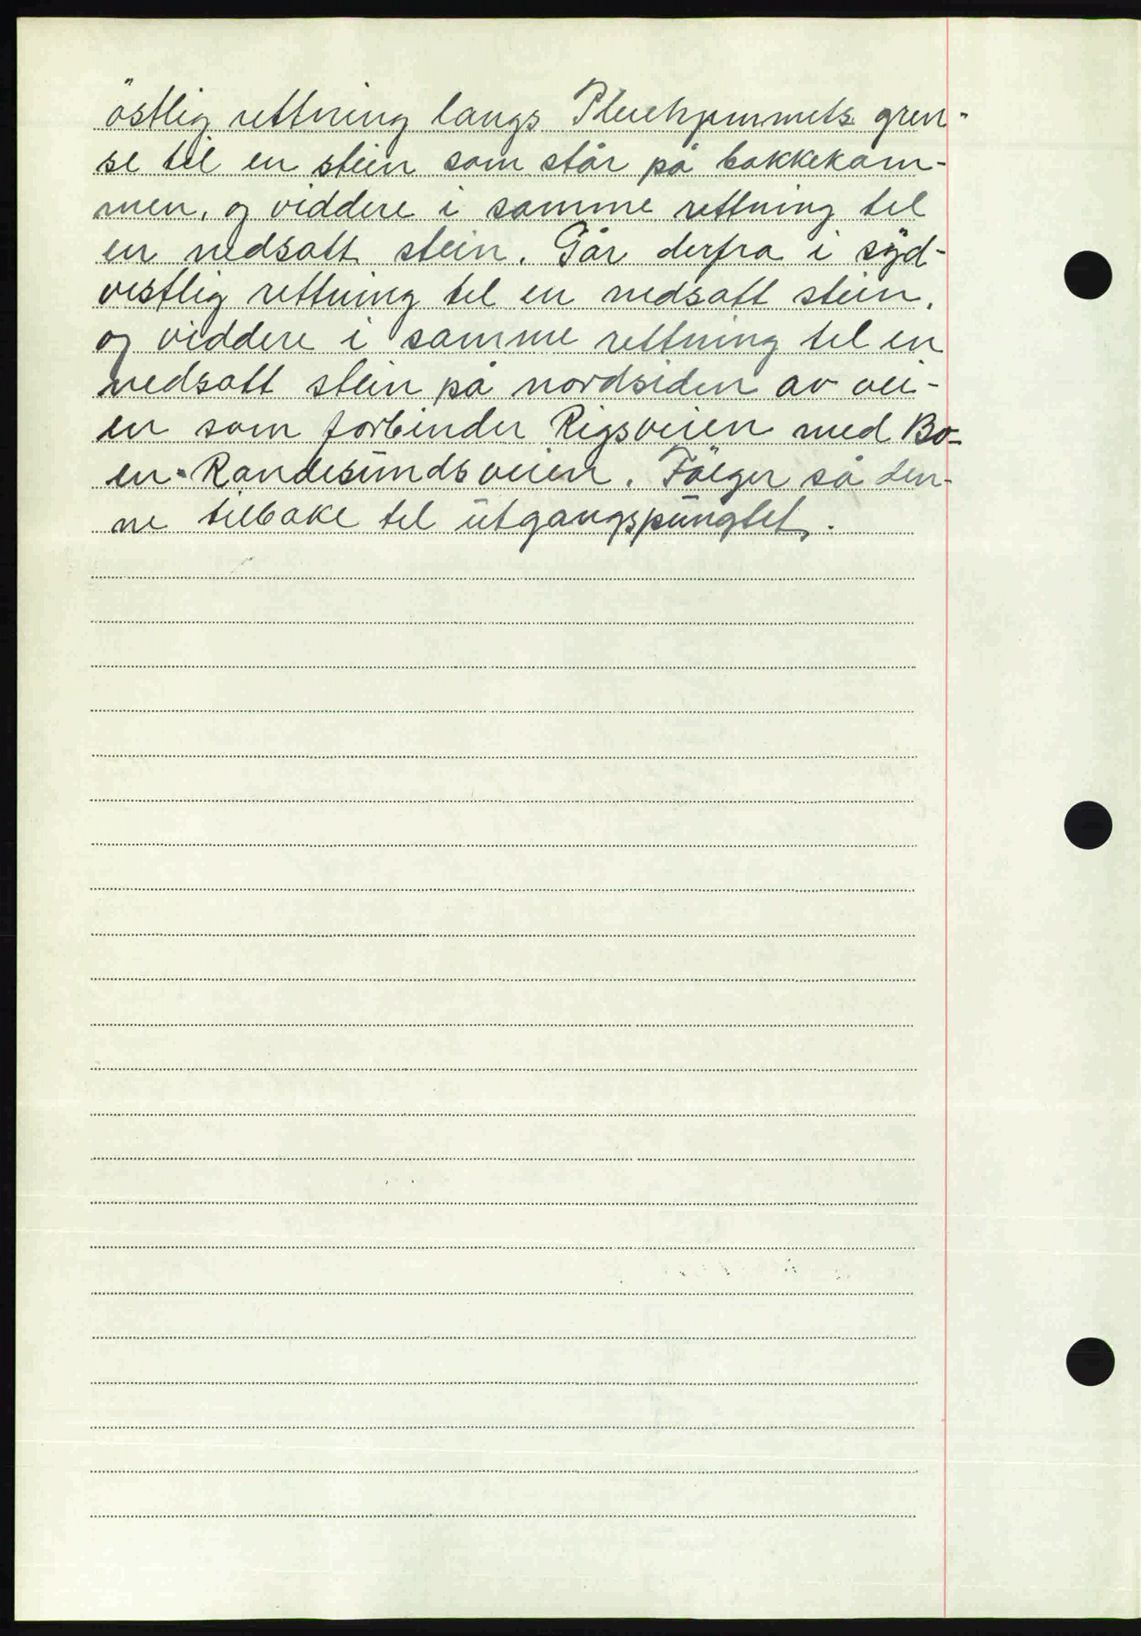 östlig rettning langs Pleiehjemmets gren-
se til en stein som står på bakkekam-
men, og viddere i samme rettning til
en nedsatt stein. Går derfra i syd-
vestlig rettning til en nedsatt stein,
og viddere i samme rettning til en
nedsatt stein på nordsiden av vei-
en som forbinder Rigsveien med Bo-
en-Randesundsveien. Fölger så den-
ne tilbake til utgangspungtet.